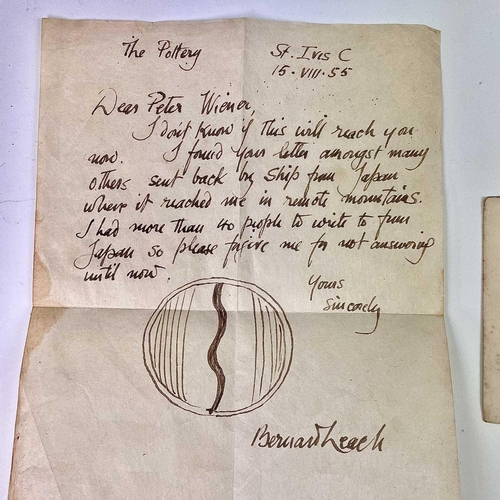 The Pottery
St. Ives C
15·VIII·55
Dear Peter Wiener,
I don't know if this will reach you
now. I found your letter amongst many
others sent back by ship from Japan
where it reached me in remote mountains.
I had more than 40 people to write to from
Japan so please forgive me for not answering
until now.
Yours
Sincerely
Bernard Leach